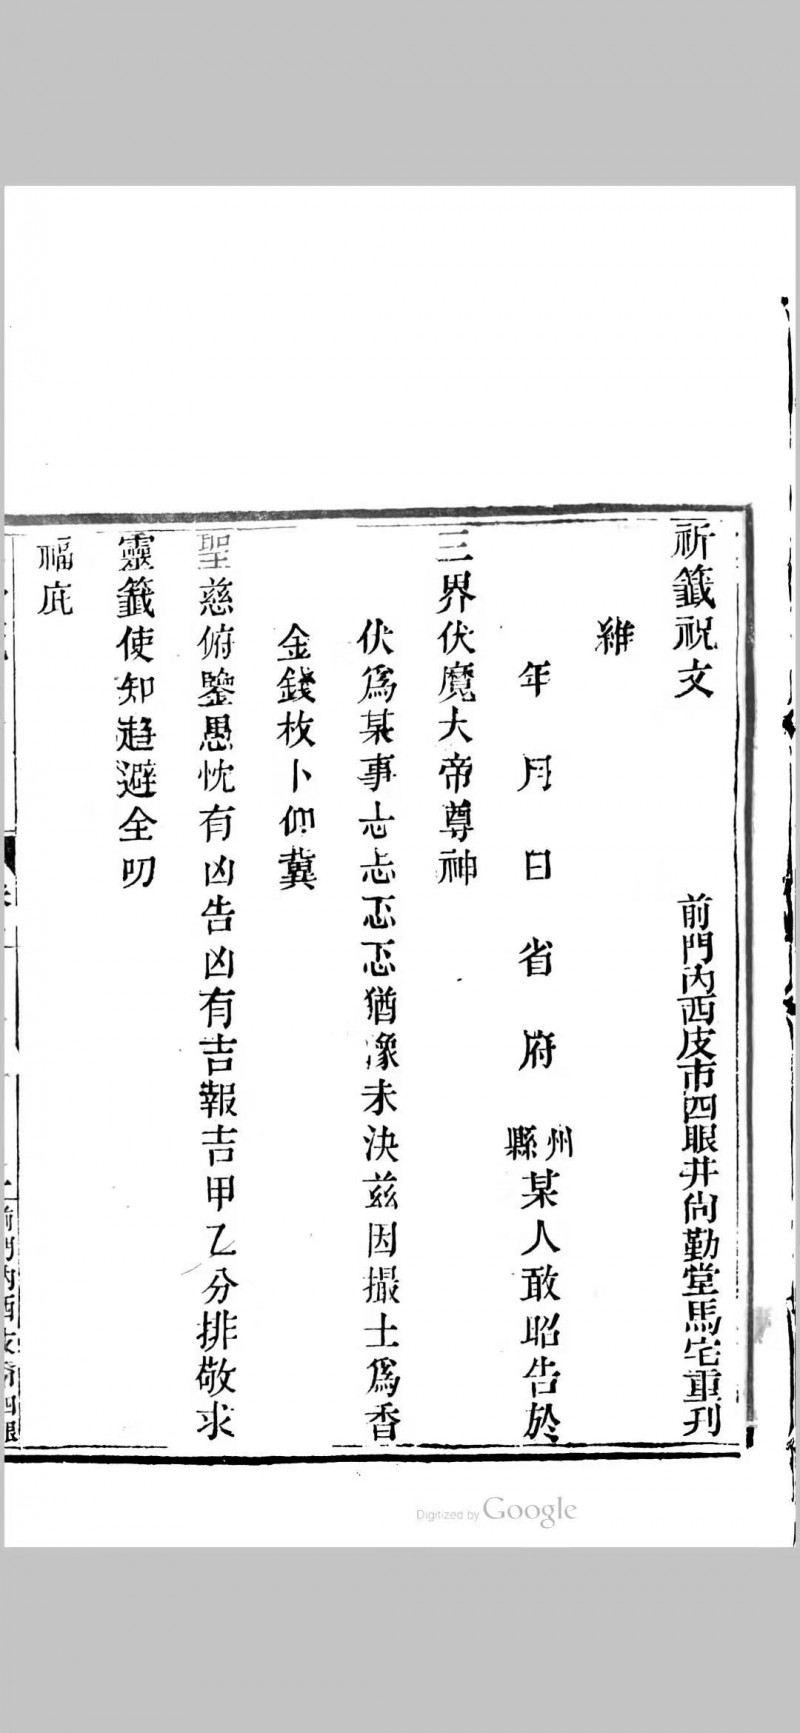 祈籤祝文　前門內西皮市四眼井尚勤堂馬宅重刊
維
年月日省府州縣某人敢昭告於
三界伏魔大帝尊神
伏爲某事忐忐忑忑猶豫未決茲因撮土爲香
金錢枚卜仰冀
聖慈俯鑒愚忱有凶告凶有吉報吉甲乙分排敬求
靈籤使知趋避全叨
福庇
前門內西皮市四眼
Digitized by Google